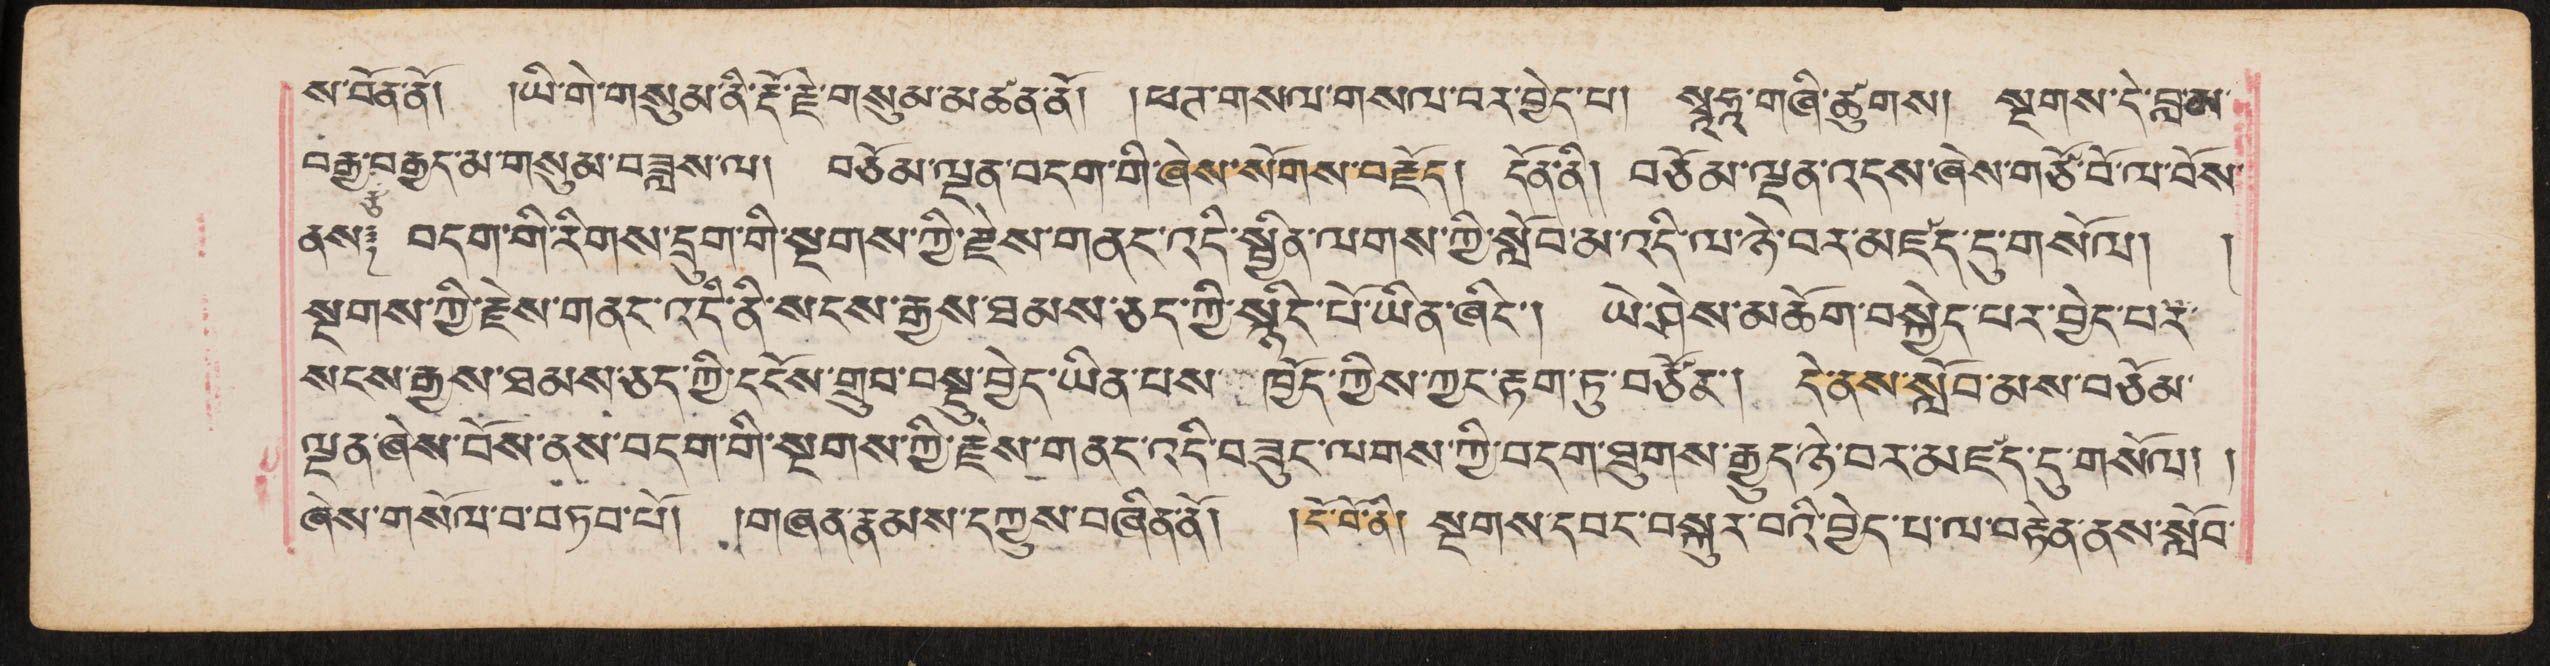 ས་བོན་ནོ། །ཡི་གེ་གསུམ་ནི་རྡོ་རྗེ་གསུམ་མཚན་ནོ། །ཕཊ་གསལ་གསལ་བར་བྱེད་པ། སྭཱཧཱ་གཞི་ཚུགས། སྔགས་དེ་བླ་མ་
བརྒྱ་བརྒྱད་མ་གསུམ་བཟླས་ལ། བཅོམ་ལྡན་བདག་གི་ཞེས་སོགས་བརྗོད། དོན་ནི། བཅོམ་ལྡན་འདས་ཞེས་གཙོ་བོ་ལ་བོས་
ནས༔ བདག་གི་རིགས་དྲུག་གི་སྔགས་ཀྱི་རྗེས་གནང་འདི་སྦྱིན་ལགས་ཀྱི་སློབ་མ་འདི་ལ་ཉེ་བར་མཛད་དུ་གསོལ། །
སྔགས་ཀྱི་རྗེས་གནང་འདི་ནི་སངས་རྒྱས་ཐམས་ཅད་ཀྱི་སྙིང་པོ་ཡིན་ཞིང་། ཡེ་ཤེས་མཆོག་བསྐྱེད་པར་བྱེད་པར་
སངས་རྒྱས་ཐམས་ཅད་ཀྱི་དངོས་གྲུབ་བསྡུ་བྱེད་ཡིན་པས་ ཁྱོད་ཀྱིས་ཀྱང་རྟག་ཏུ་བཙོན་། དེ་ནས་སློབ་མས་བཅོམ་
ལྡན་ཞེས་བོས་ནས་བདག་གི་སྔགས་ཀྱི་རྗེས་གནང་འདི་བཟུང་ལགས་ཀྱི་བདག་ཐུགས་རྒྱུད་ཉེ་བར་མཛད་དུ་གསོལ། །
ཞེས་གསོལ་བ་བཏབ་པོ། །གཞན་རྣམས་དཀྱུས་བཞིན་ནོ། །ངོ་བོ་ནི། སྔགས་དབང་བསྐུར་བའི་བྱེད་པ་ལ་བརྟེན་ནས་སློབ་